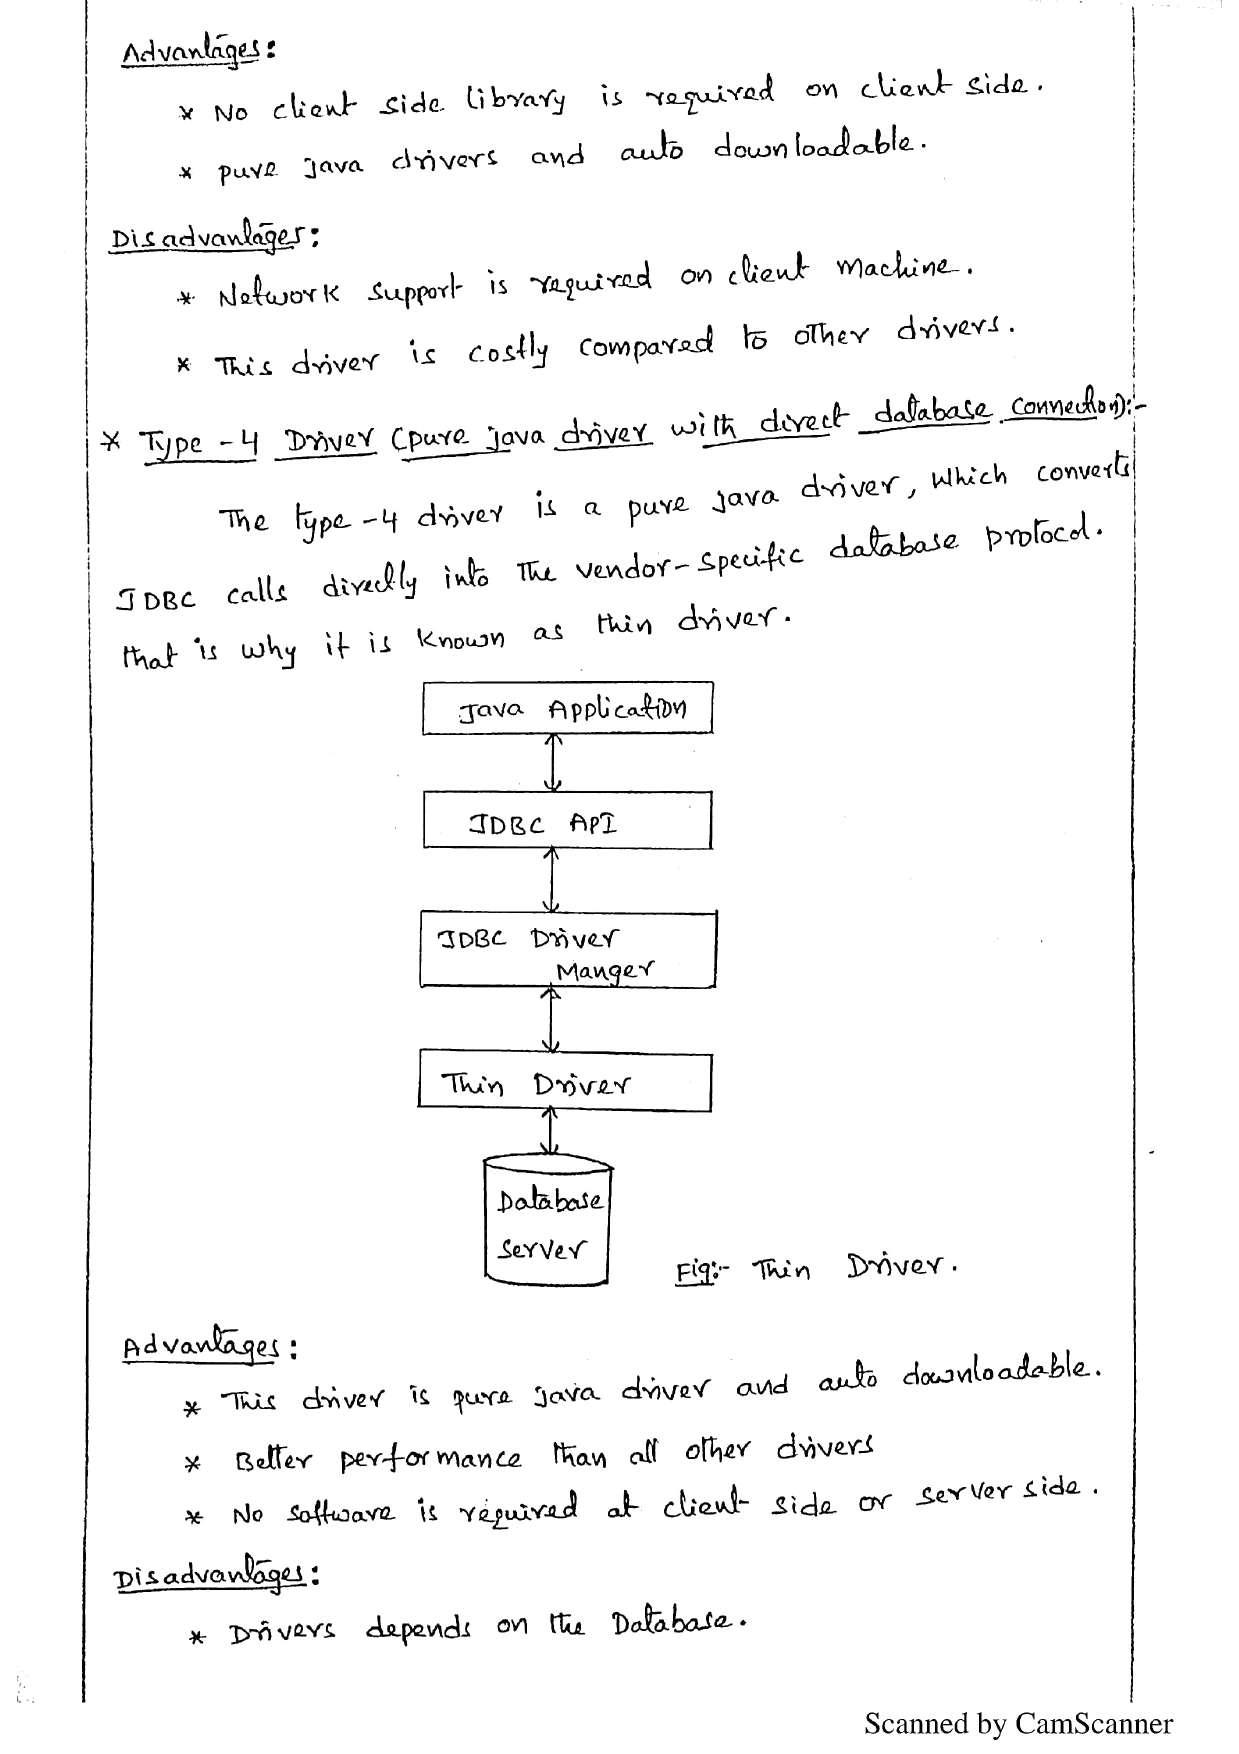 Advantages:
* No client side library is required on client side.
* pure java drivers and auto downloadable.
Disadvantages:
* Network support is required on client machine.
* This driver is costly compared to other drivers.
* Type-4 Driver (pure java driver with direct database connection):-
The type-4 driver is a pure java driver, which converts
JDBC calls directly into the vendor-specific database protocol.
that is why it is known as thin driver.
Java Application
JDBC API
JDBC Driver
Manger
Thin Driver
Database
Server
Fig:- Thin Driver.
Advantages:
* This driver is pure java driver and auto downloadable.
* Better performance than all other drivers
* No software is required at client side or server side.
Disadvantages:
* Drivers depends on the Database.
Scanned by CamScanner